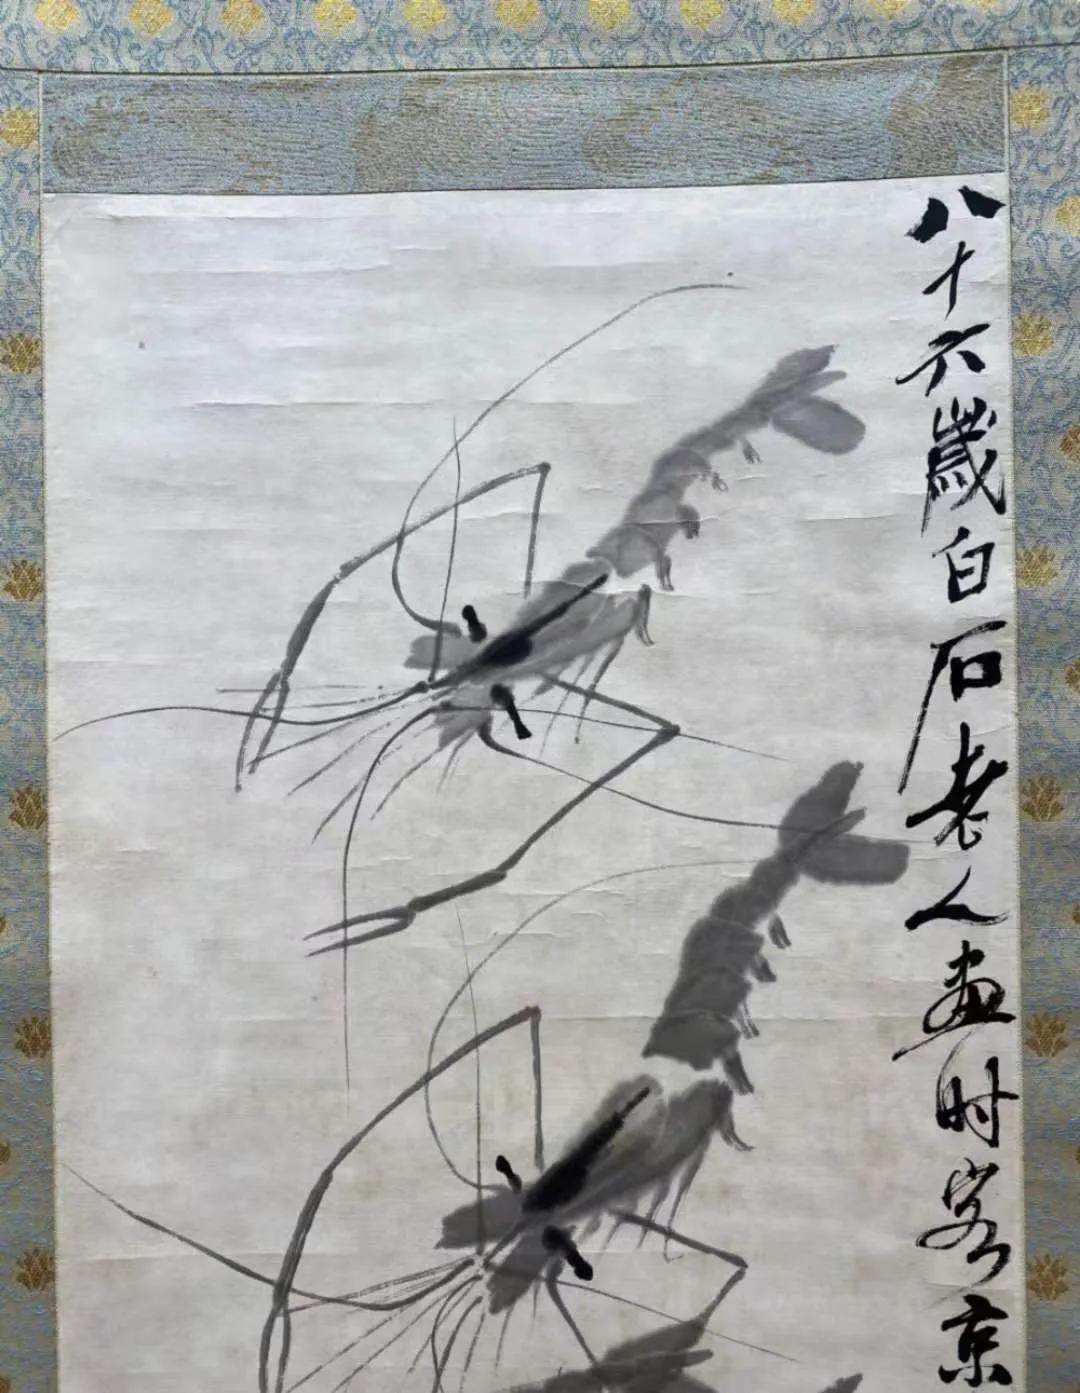 八十六歲白石老人畫时客京